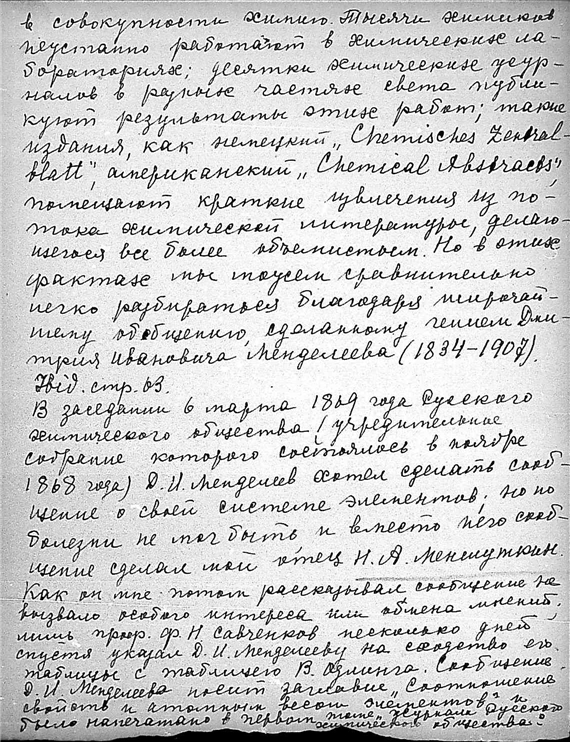 в совокупности химию. Тысячи химиков
неустанно работают в химических ла-
бораториях; десятки химических жур-
налов в разных частях света публи-
куют результаты этих работ; такие
издания, как немецкий „Chemisches Zentral-
blatt", американский „Chemical Abstracts",
помещают краткие извлечения из по-
тока химической литературы, делаю-
щегося все более объемистым. Но в этих
фактах мы можем сравнительно
легко разбираться благодаря широчай-
шему обобщению, сделанному гением Дми-
трия Ивановича Менделеева (1834-1907).
Ibid. стр. 63.
В заседании 6 марта 1869 года Русского
химического общества (учредительное
собрание которого состоялось в ноябре
1868 года) Д. И. Менделеев хотел сделать сооб-
щение о своей системе элементов, но по
болезни не мог быть и вместо него сооб-
щение сделал мой отец Н. А. Меншуткин.
Как он мне потом рассказывал сообщение не
вызвало особого интереса или обмена мнений,
лишь проф. Ф. Н. Савченков несколько дней
спустя указал Д. И. Менделееву на сходство его
таблицы с таблицею В. Одлинга. Сообщение
Д. И. Менделеева носит заглавие „Соотношение
свойств и атомным весом элементов" и
было напечатано в первом томе „Журнала Русского
химического общества".